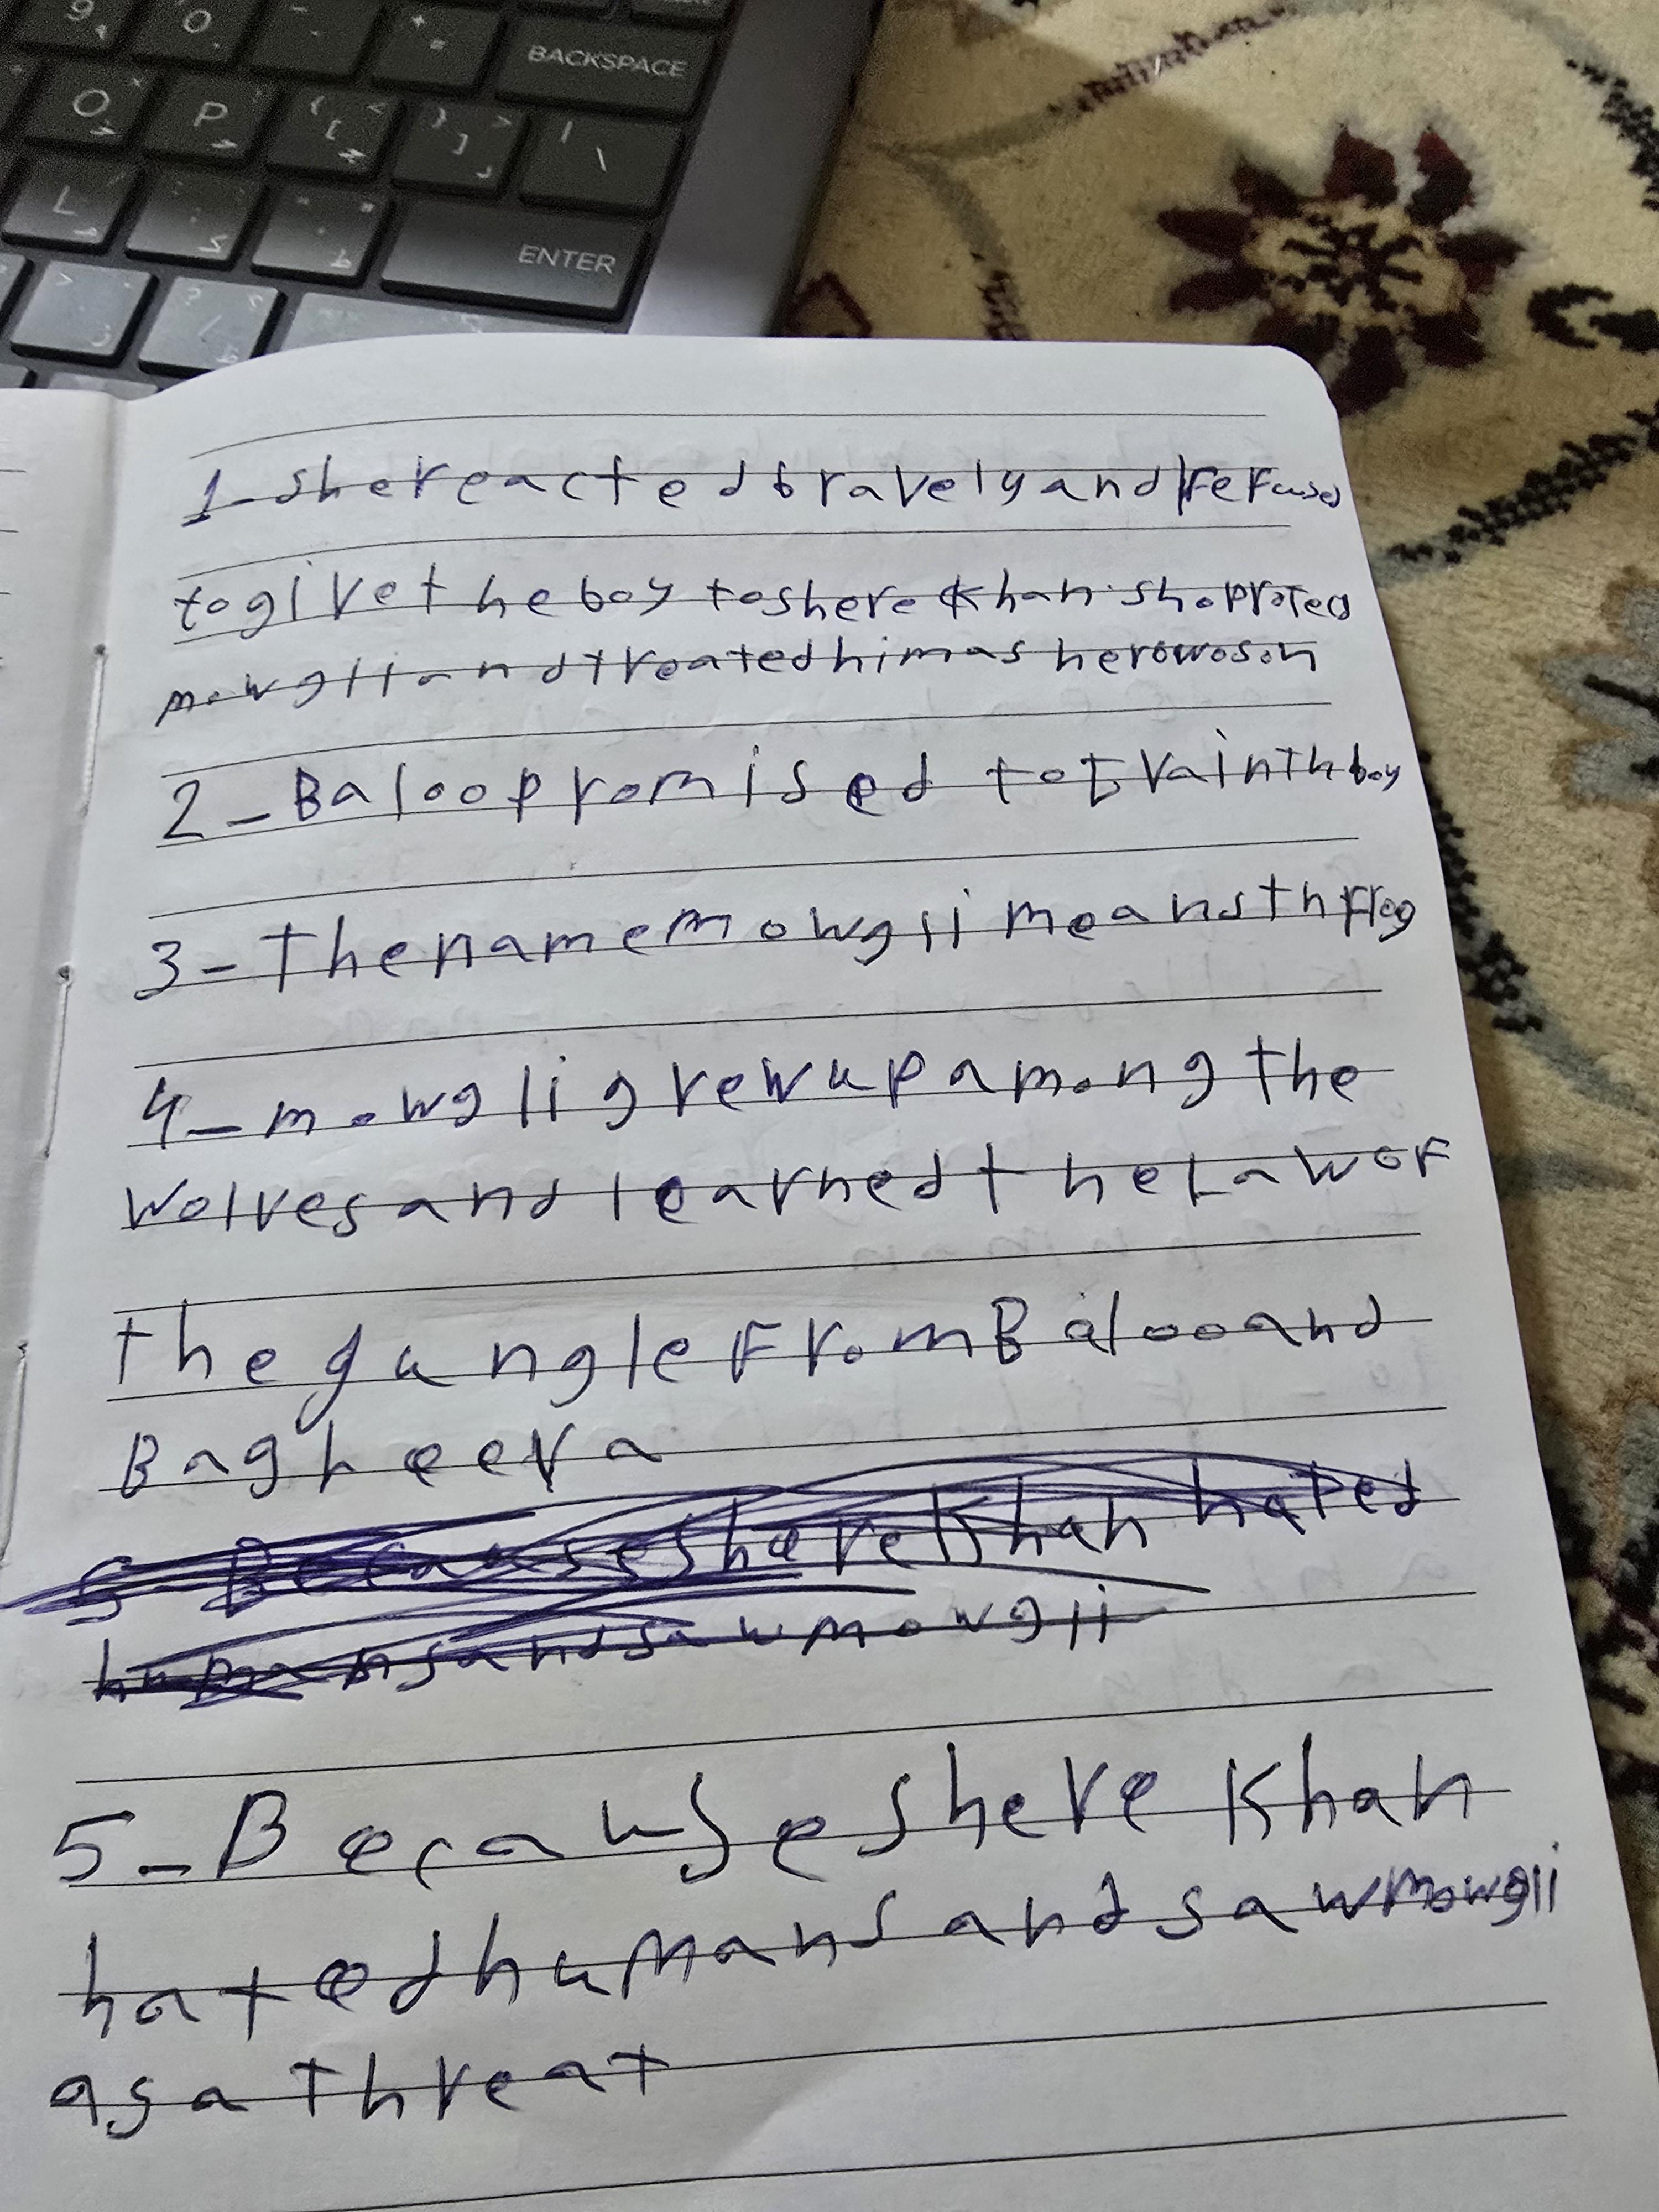 9 O - + =
BACKSPACE
O P { [ } ] | \
L
ENTER
> ? /
1- she reacted bravely and refused
to give the boy to shere Khan. she protec
mowgli and treated him as her own son
2- Baloo promised to train th boy
3- The name mowgli means th Frog
4- mowgli grew up among the
wolves and learned the Law oF
the gungle From Baloo and
Bagheera
5- Because shere Khan hated
humans and saw mowgli
5- Because shere Khan
hated humans and saw mowgli
as a threat